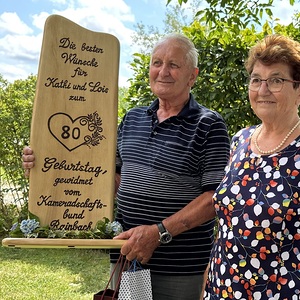 Die besten
Wünsche
für
Kathi und Lois
zum
80
Geburtstag,
gewidmet
vom
Kameradschafts-
bund
Rainbach